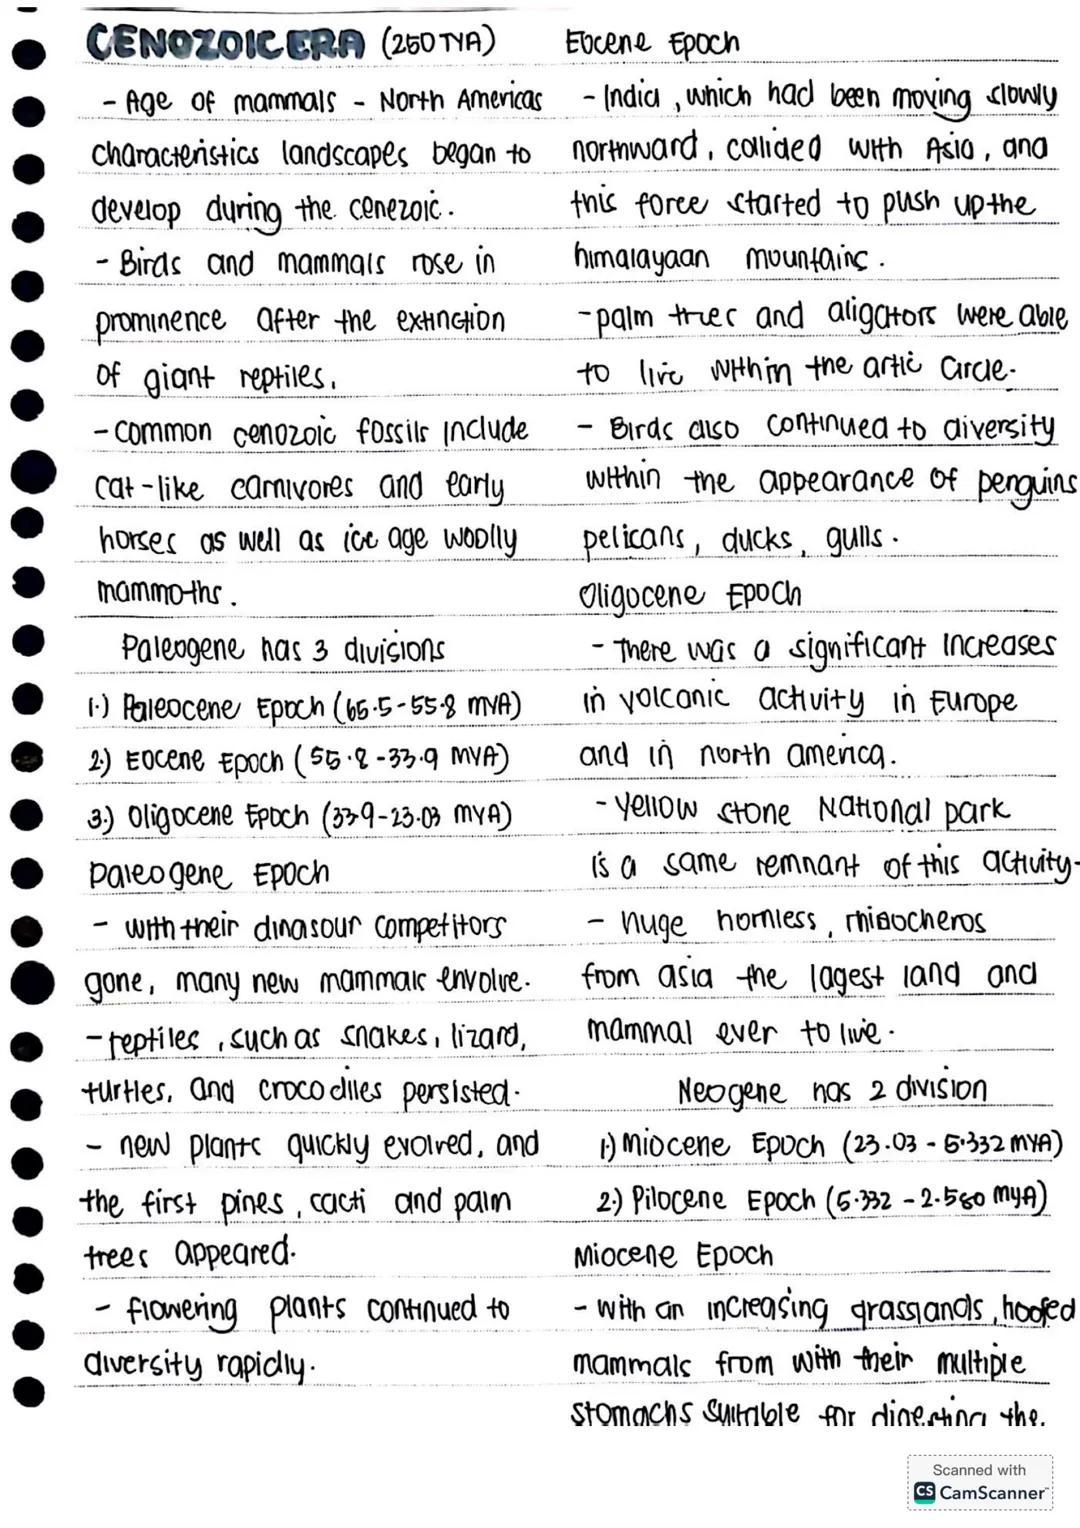 CENOZOIC ERA (260 TYA)
- Age of mammals - North Americas
characteristics landscapes began to
develop during the cenezoic.
- Birds and mammals rose in
prominence after the extinction
of giant reptiles.
- common cenozoic fossils include
cat-like carnivores and early
horses as well as ice age woolly
mammoths.
Paleogene has 3 divisions
1.) Paleocene Epoch (65.5-55.8 MYA)
2.) Eocene Epoch (55.8-33.9 MYA)
3.) Oligocene Epoch (33.9-23.03 MYA)
Paleogene Epoch
- with their dinasour competitors
gone, many new mammals envolve.
- reptiles, such as snakes, lizard,
turtles, and crocodiles persisted.
- new plants quickly evolved, and
the first pines, cacti and palm
trees appeared.
- flowering plants continued to
diversity rapidly.
Eocene Epoch
- India, which had been moving slowly
northward, collided with Asia, and
this force started to push up the
himalayaan mountains.
- palm trees and aligators were able
to live within the artic circle.
- Birds also continued to diversity
within the appearance of penguins
pelicans, ducks, gulls.
Oligocene Epoch
- There was a significant increases
in volcanic activity in Europe
and in north america.
- yellow stone National park
is a same remnant of this activity-
- huge hornless, rhinocheros
from asia the lagest land and
mammal ever to live.
Neogene has 2 division
1.) Miocene Epoch (23.03 - 5.332 MYA)
2.) Pilocene Epoch (5.332 - 2.580 MYA)
Miocene Epoch
- with an increasing grasslands, hoofed
mammals from with their multiple
stomachs suitable for digesting the.
Scanned with
CS CamScanner